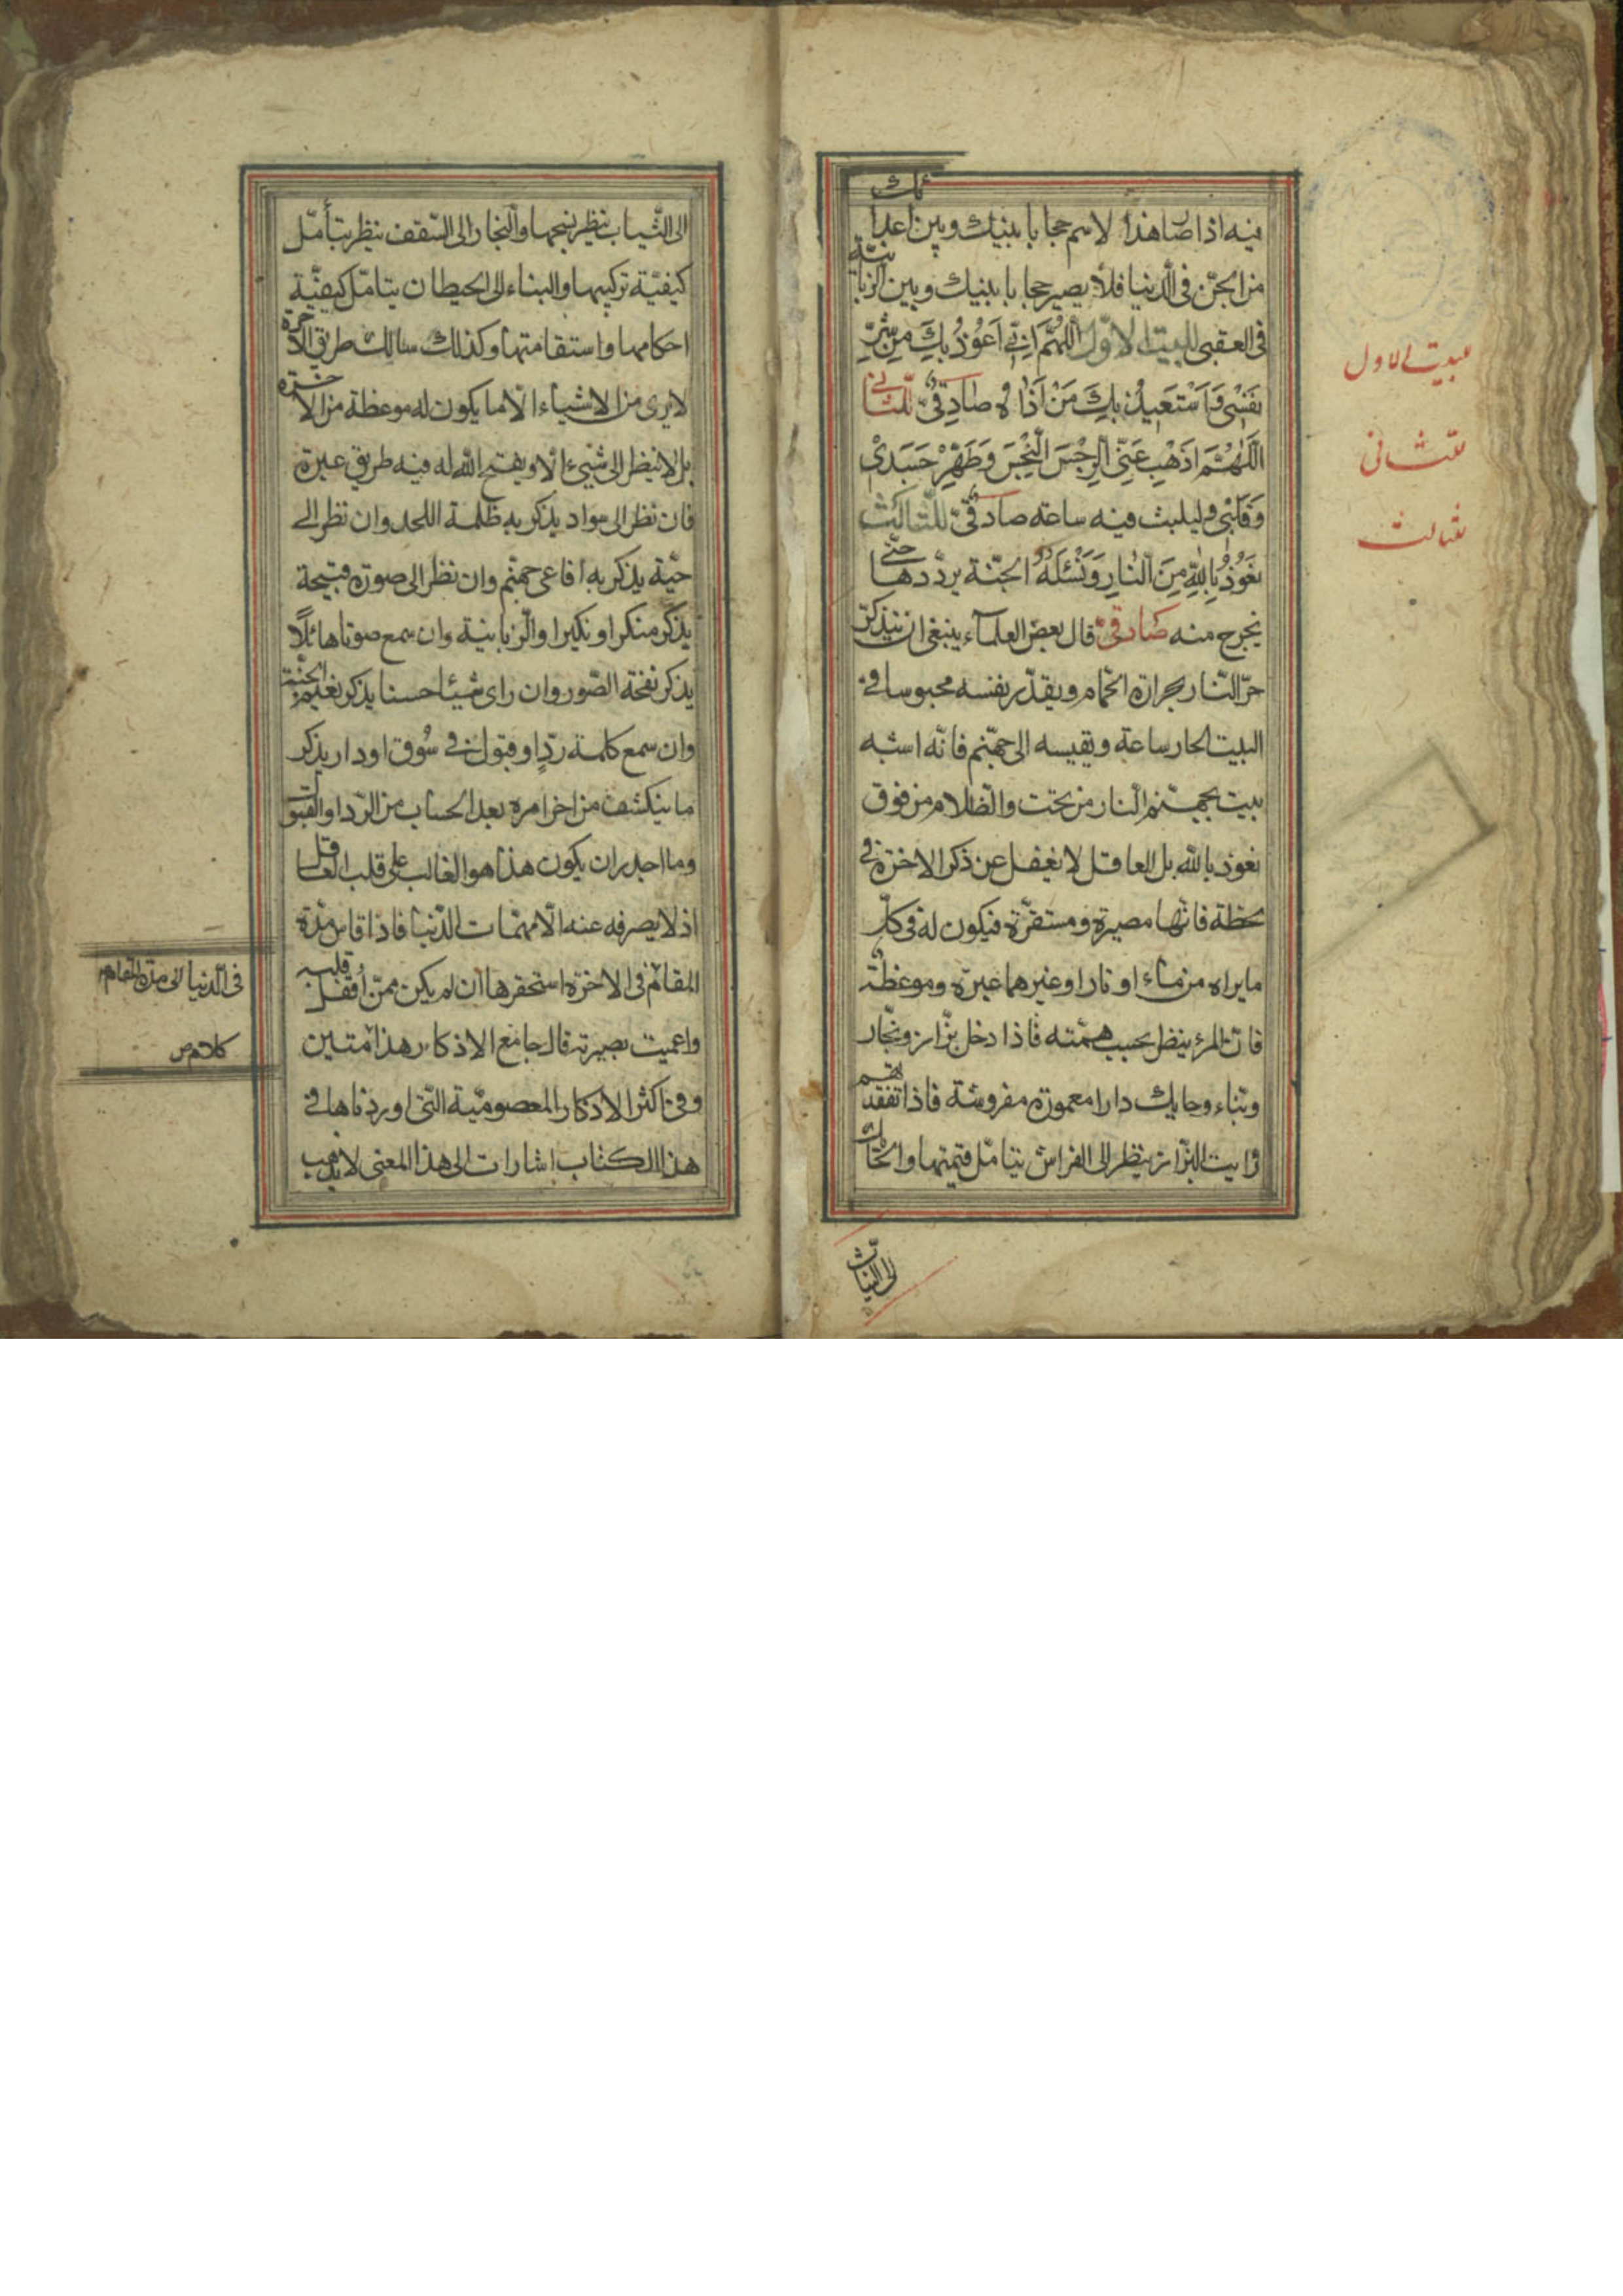 فيه اذا صا هذا لاسم حجابا بينك وبين اعدائك
من الجن فى الدنيا فلا يصير حجابا بينك وبين الزبانية
فى العقبى للبيت الاول اللهم انى اَعُوذُ بِكَ مِن شَرِّ
نفسى وَاَسْتَعيذُ بِكَ مَنْ اَذاهُ صادقى للثانى
اَللّهُمَّ اذهِب عَنّى الرِجسَ النَّجِسَ وَطَهِّر جَسَدى
وَقَلبى وليلبث فيه ساعة صادقى للثالث
نَعُوذُ بِاللهِ مِنَ النارِ وَنَسْئَلُهُ الجنّة يردّدها حتى
يخرج منه صادقى قال بعض العلماء ينبغى ان يتذكر
حر النار بحرارة الحمام ويقدّر نفسه محبوسا فى
البيت الحار ساعة ويقيسه الى جهنّم فانّه اشبه
بيت بجهنم النار من تحت والظلام من فوق
نعوذ بالله بل العاقل لا يغفل عن ذكر الاخرة فى
لحظة فانها مصيره ومستقرّه فيكون له فى كلّ
ما يراه من ماء او نار او غيرهما عبرة وموعظة
فان المرء ينظر بحسب همّته فاذا دخل بزّاز ونجّار
وبناء وحايك دارا معمورة مفروشة فاذا تفقدتهم
رايت البزّاز ينظر الى الفراش يتامّل قيمتها والحائك
الى الثياب
للبيت الاول
للثانى
للثالث
الى الثياب ينظر نسجها والنجار الى السّقف ينظر يتأمّل
كيفيّة تركيبها والبناء الى الحيطان يتامّل كيفيّة
احكامها واستقامتها وكذلك سالك طريق الاخرة
لا يرى من الاشياء الّا ما يكون له موعظة من الاخرة
بل لا ينظر الى شيىء الا ويفتح الله له فيه طريق عبرة
فان نظر الى سواد يذكر به ظلمة اللحد وان نظر الى
حيّة يذكر به افاعى جهنّم وان نظر الى صورة قبيحة
يذكر منكرا ونكيرا والزبانية وان سمع صوتا هائلًا
يذكر نفخة الصّور وان راى شيئا حسنا يذكر نعيم الجنّة
وان سمع كلمة ردٍّ او قبول فى سُوق او دار يذكر
ما ينكشف من اخر امره بعد الحساب من الرّد او القبول
وما اجدر ان يكون هذا هو الغالب على قلب العاقل
اذ لا يصرفه عنه الّا مهمّات الدّنيا فاذا قاس مدّة
المقام فى الاخرة استحقرها ان لم يكن ممّن اُقفل قلبه
واعميت بصيرته قال جامع الاذكار هذا متين
وفى اكثر الاذكار المعصوميّة التى اوردناها فى
هذا الكتاب اشارات الى هذا المعنى لا يذهب
فى الدنيا الى مدة المقام
كلام ص